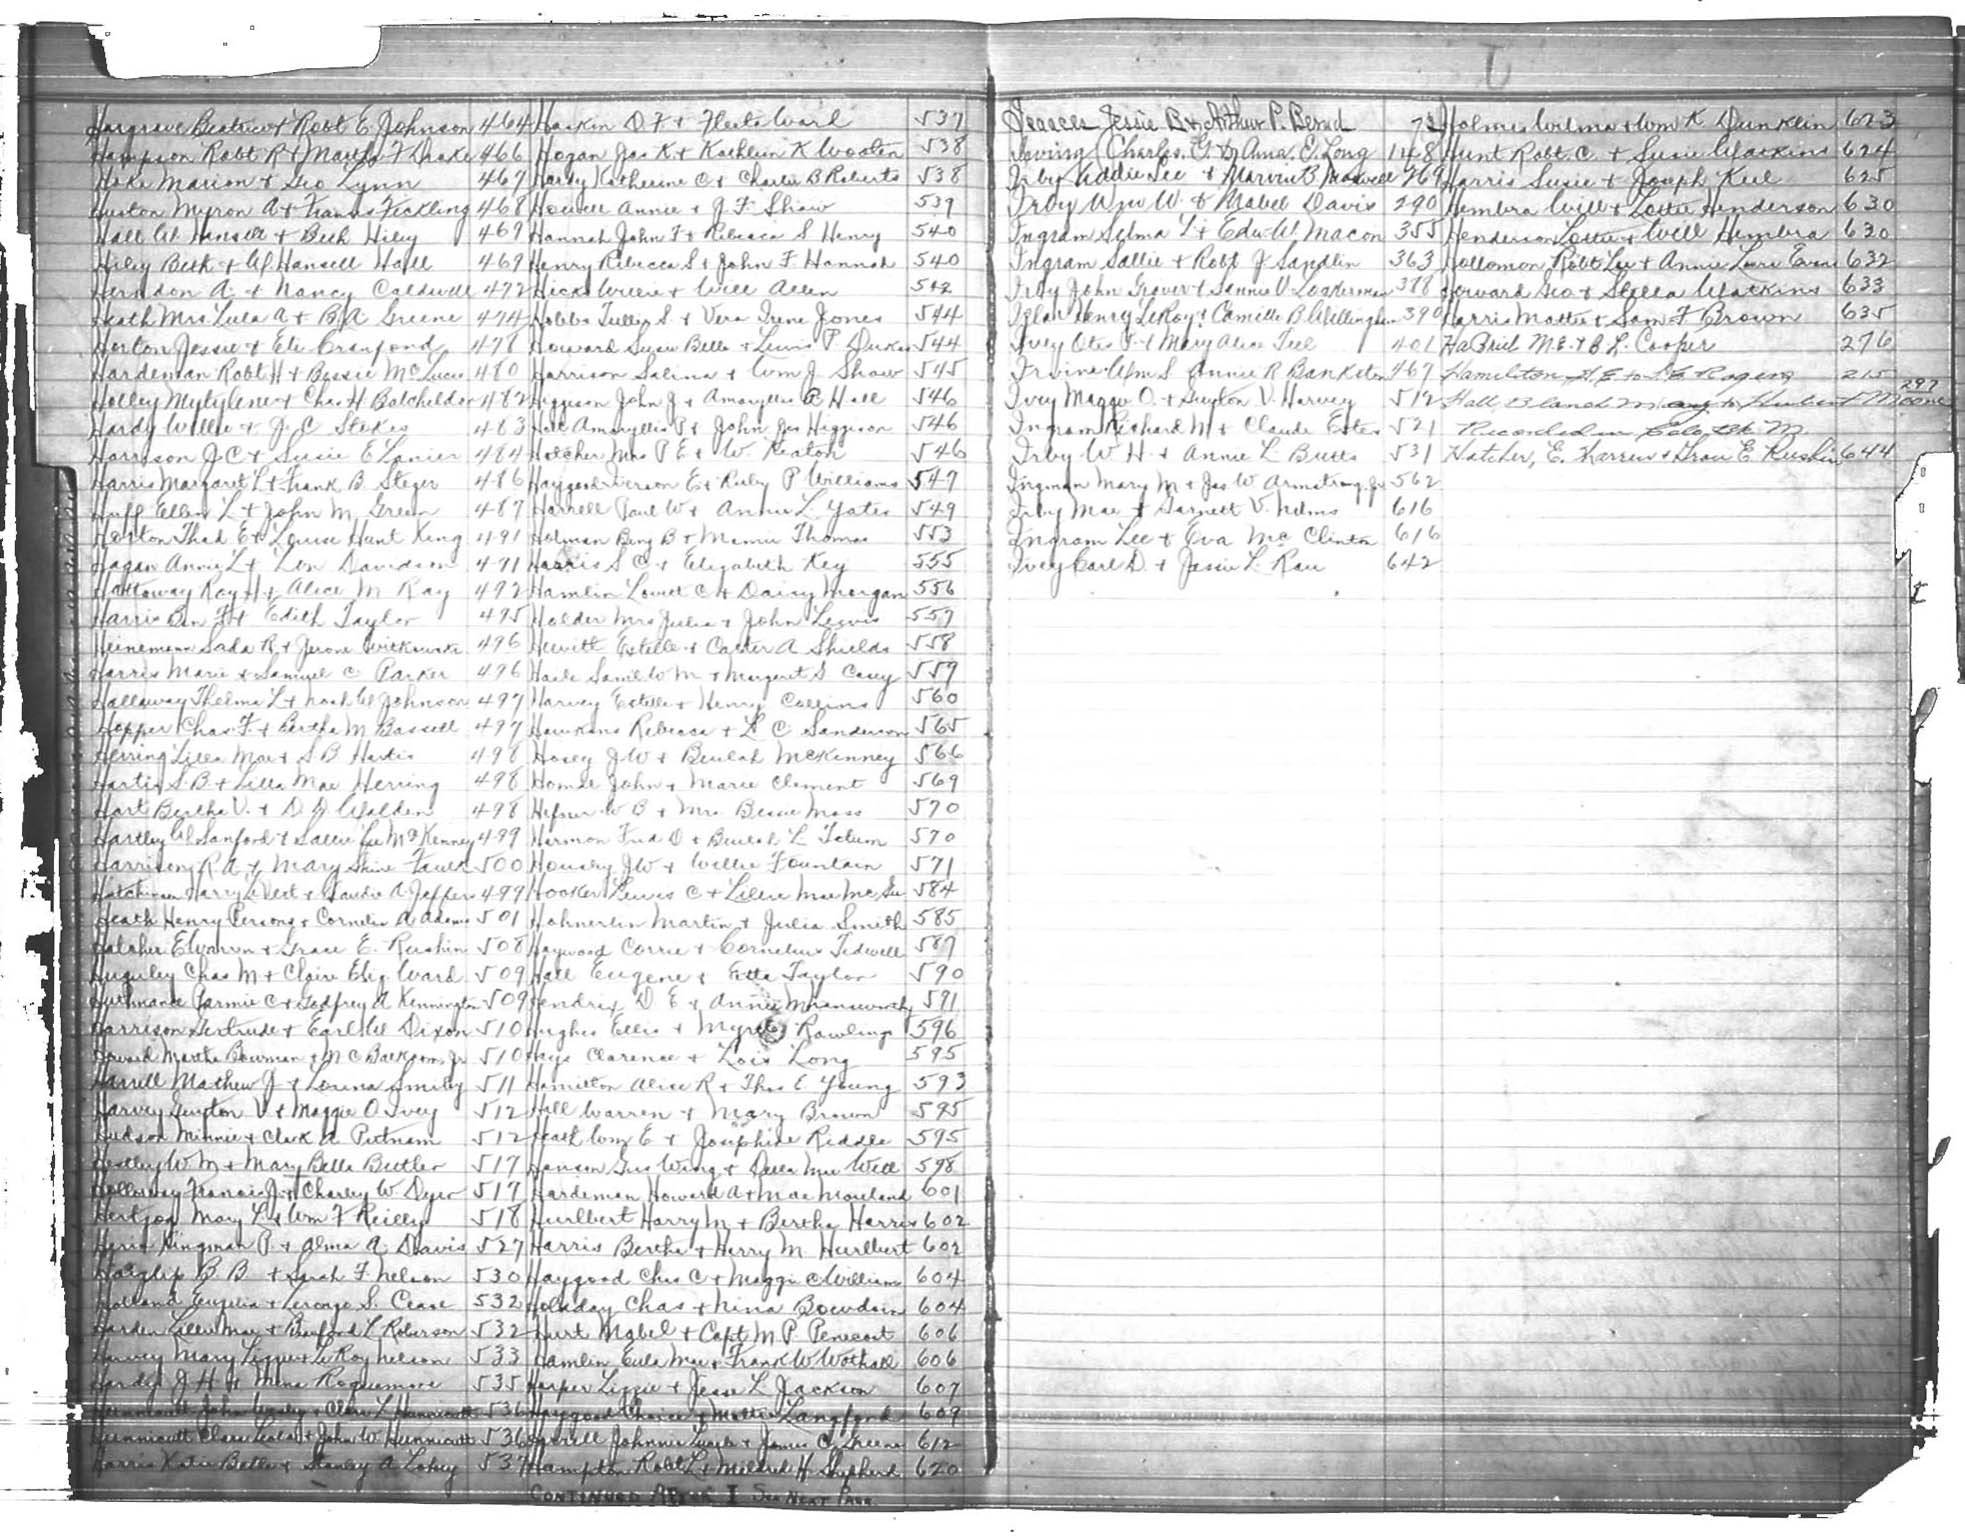 Hargrave Beatrice + Robt E. Johnson 464
Hampson Robt R + Martha F Drake 466
Hake Marion + Geo Lynn 467
Huston Myron A + Frances Fickling 468
Hall W. Hansell + Beth Hiley 469
Hiley Beth + W Hansell Hall 469
Herndon A. + Nancy Caldwell 472
Heath Mrs Lula A + B A Greene 474
Horton Jessie + Eli Cranford 478
Hardeman Robt H + Bessie McLucas 480
Holley Mytylene + Chas H Batchelder 482
Hardy Willie + J. C Stokes 483
Harrison J C + Susie E Lanier 484
Harris Margaret L + Frank B. Steger 486
Huff Ellen L + John M Green 487
Horton Thad E + Louise Hunt King 491
Hagan Annie L + Lon Davidson 491
Hattoway Ray H + Alice M Ray 492
Harris Ben F + Edith Taylor 495
Heinemann Sada R + Jerome 496
Harris Marie + Samuel C Parker 496
Hallaway Thelma L + Noah W Johnson 497
Hopper Chas F + Bertha M Bassett 497
Herring Lilla Mae + S B Hartis 498
Hartis S. B + Lilla Mae Herring 498
Hart Bertha V. + D D Walden 498
Hartley W Sanford + Sallie Lee McKenney 499
Harrison R A + Mary Shine Faulk 500
Hutchinson Harry West + A Jeffers 499
Heath Henry Persons + Cornelia A Adams 501
Hatcher E Warren + Grace E. Rushin 508
Huguley Chas M + Claire Eliz Ward 509
Parmie C + Godfrey A Kennington 509
Harrison Gertrude + Earl W Dixon 510
Howard Martha Bowman + M C Balkcom Jr 510
Harrell Mathew J + Lorena Smiley 511
Harvey Guyton V + Maggie O Ivey 512
Hudson Minnie + Clark A Putnam 512
Hestley W M + Mary Belle Butler 517
Holloway Francis J + Charley W. Dyer 517
Hertzog Mary L + Wm F Reilly 518
Kingman P. + Alma A. Davis 527
Haizlip B B + Sarah F. Nelson 530
Holland Eugelia + George S. Cease 532
Harden Lillie Mae + Branford L Roberson 532
Harvey Mary Lizzie + LeRoy Nelson 533
Hardy J H + Mina Roquemore 535
Hunnicutt John Wesley + Clare L Hunnicutt 536
Hunnicutt Clare + John W Hunnicutt 536
Harris Katie Belle + Stanley A Lohey 537
Haskin D. F + Fleeta Ward 537
Hogan Jas K + Kathleen K Wooten 538
Hardy Katherine C + Charlie B Roberts 538
Howell Annie + J. F. Shaw 539
Hannah John F + Rebecca S Henry 540
Henry Rebecca S + John F Hannah 540
Hicks Willie + Will Allen 542
Hobbs Tulley S + Vera Irene Jones 544
Howard Susie Belle + Lewis P Dukes 544
Harrison Salina + Wm J. Shaw 545
Higgison John J + Amaryllis P Hall 546
Hall Amaryllis P + John Jos Higgison 546
Hatcher Mrs P E + W. Keaton 546
Haygood Iverson E + Ruby P Williams 547
Harrell Paul W + Annie L Yates 549
Holman Benj B + Mamie Thomas 553
Harris S C + Elizabeth Key 555
Hamlin Lovett C + Daisy Morgan 556
Holder Mrs Julia + John Lewis 557
Hewitt Estelle + Carter A Shields 558
Haile Saml W M + Margaret S Casey 559
Harvey Estelle + Henry Collins 560
Hawkins Rebecca + L C Sanderson 565
Hosey J W + Beulah McKinney 566
John + Marie Clement 569
Hefner W B + Mrs Bessie Moss 570
Harmon Fred O + Beulah L Tatum 570
Housley J W + Willie Fountain 571
Hooker Lewis C + Lillie Mae McGee 584
Hohnerlein Martin + Julia Smith 585
Haywood Corrie + Cornelius Tidwell 587
Hall Eugene + Etta Taylor 590
Hendrix D E + Annie 591
Hughes Ellis + Myrtle Rawlings 596
Hays Clarence + Lois Long 595
Hamilton Alice R + Thos E Young 593
Hill Warren + Mary Brown 595
Heath Wm E + Josephine Riddle 595
Hanson Gus Wing + Della Mae Will 598
Hardeman Howard A + Mae Moreland 601
Hurlbert Harry M + Bertha Harris 602
Harris Bertha + Harry M. Hurlbert 602
Haygood Chas C + Maggie Williams 604
Holiday Chas + Nina Bowdoin 604
Hurt Mabel + Capt M. P. Penecost 606
Hamlin Eula Mae + Frank W Wothall 606
Harper Lizzie + Jesse L Jackson 607
Haygood Choice + Mattie Langford 609
Harrell Johnnie + James C Greene 612
Hampton Robt L + Mildred H Shepherd 620
CONTINUED AFTER I SEE NEXT PAGE
I
Jessie B + Arthur P. Benich 73
Irving Charles G. & Anna C. Long 148
Irby Addie Lee + Marvin B Maxwell 269
Irby Wm W. + Mabel Davis 290
Ingram Selma L + Edw W. Macon 355
Ingram Sallie + Robt J Sandlin 363
Irby John Grover + Fannie V. Loakerman 388
Henry LeRoy + Camille B Willingham 390
Ivey Otis F + Mary Alice Teel 401
Irvine Wm S Annie R Bankston 467
Ivey Maggie O. + Guyton V. Harvey 512
Ingram Richard M + Claude Estes 521
Irby W H + Annie L Butts 531
Ingman Mary M + Jas W Armstrong Jr 562
Irby Mae + Garnett V. Nelms 616
Ingram Lee + Eva McClinton 616
Ivey Earl D. + Jessie L. Rau 642
Holmes Wilma + Wm K. Dunklin 623
Hunt Robt. C. + Susie Watkins 624
Harris Susie + Joseph Keel 625
Hembra Will + Lottie Henderson 630
Henderson Lottie + Will Hembra 630
Hollomon Robt Lee + Annie Lure Evans 632
Howard Geo + Stella Watkins 633
Harris Mattie + Sam F Brown 635
M.E. + B L. Cooper 276
Hamilton, H. E. to L. E. Rogers 215
Hall, Blanch Mary to Hubert Moore 297
Recorded in Colo. Bk M.
Hatcher, E. Warren + Grace E. Rushin 644